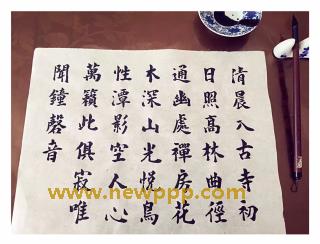 清晨入古寺初
日照高林曲徑
通幽處禪房花
木深山光悅鳥
性潭影空人心
萬籟此俱寂唯
聞鐘磬音
www.newppp.com